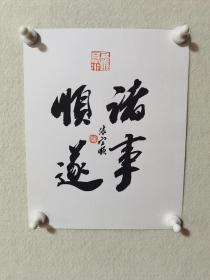 諸事
順遂